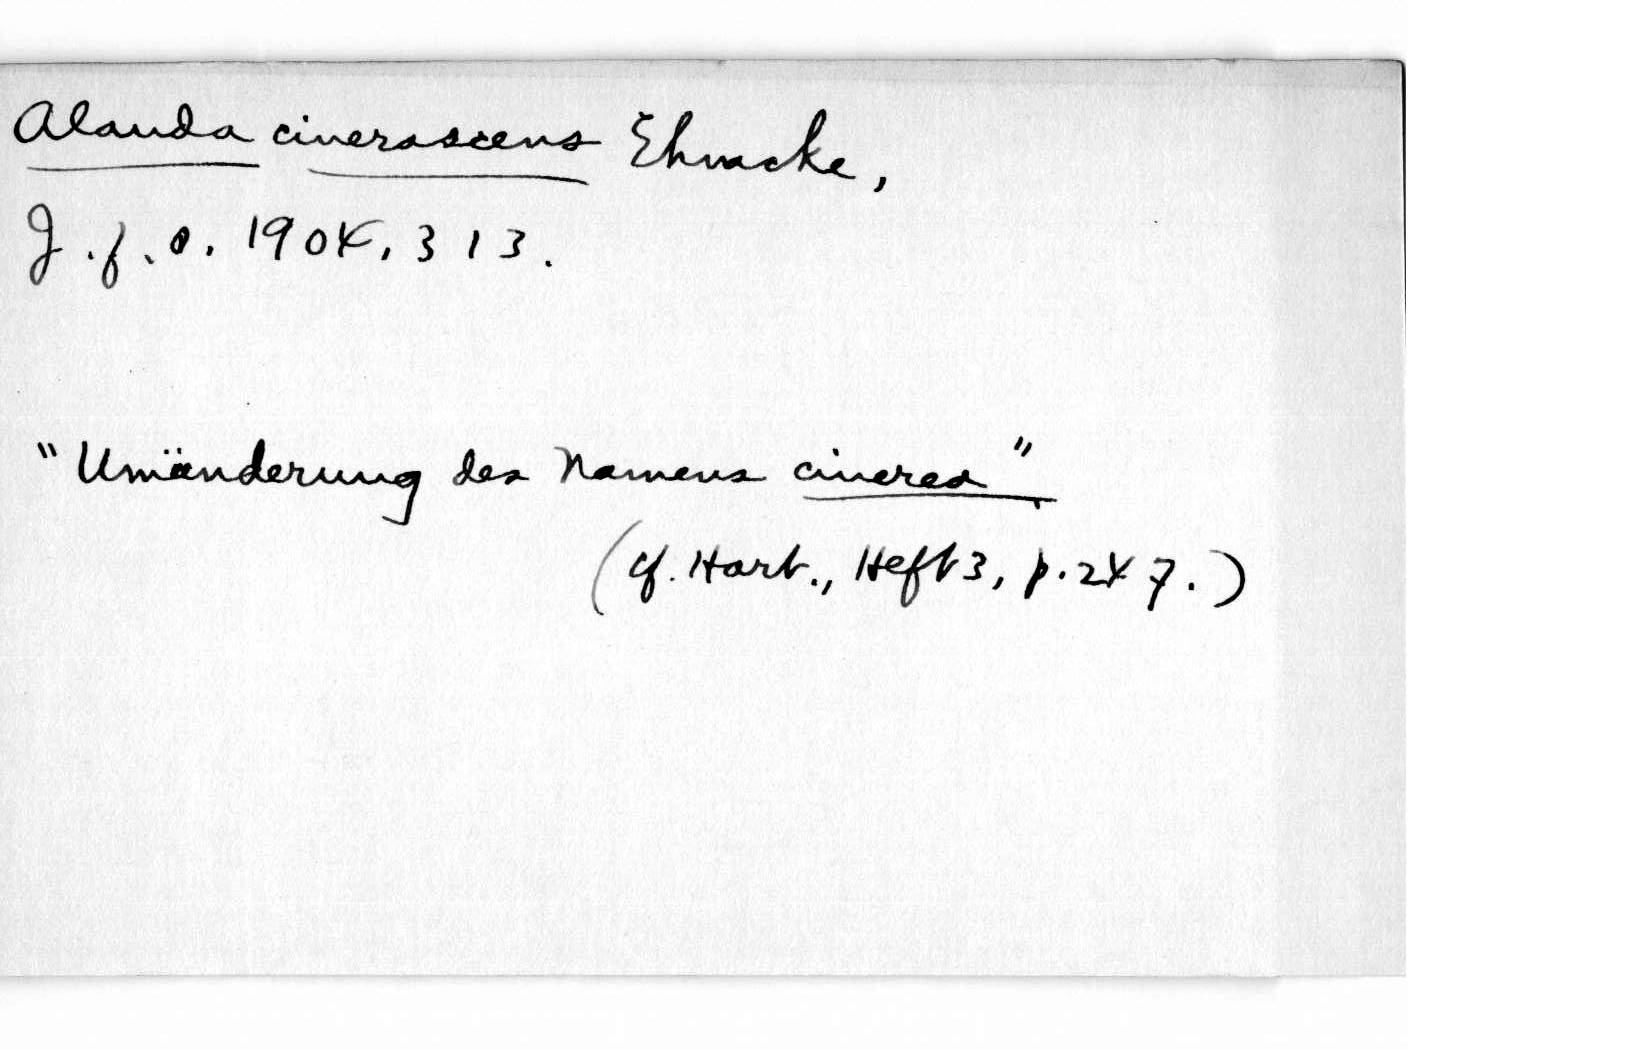 Alauda cinerascens Ehmcke,
J.f.O. 1904, 313.
"Umänderung des Namens cinerea".
(cf. Hart., Heft 3, p. 247.)